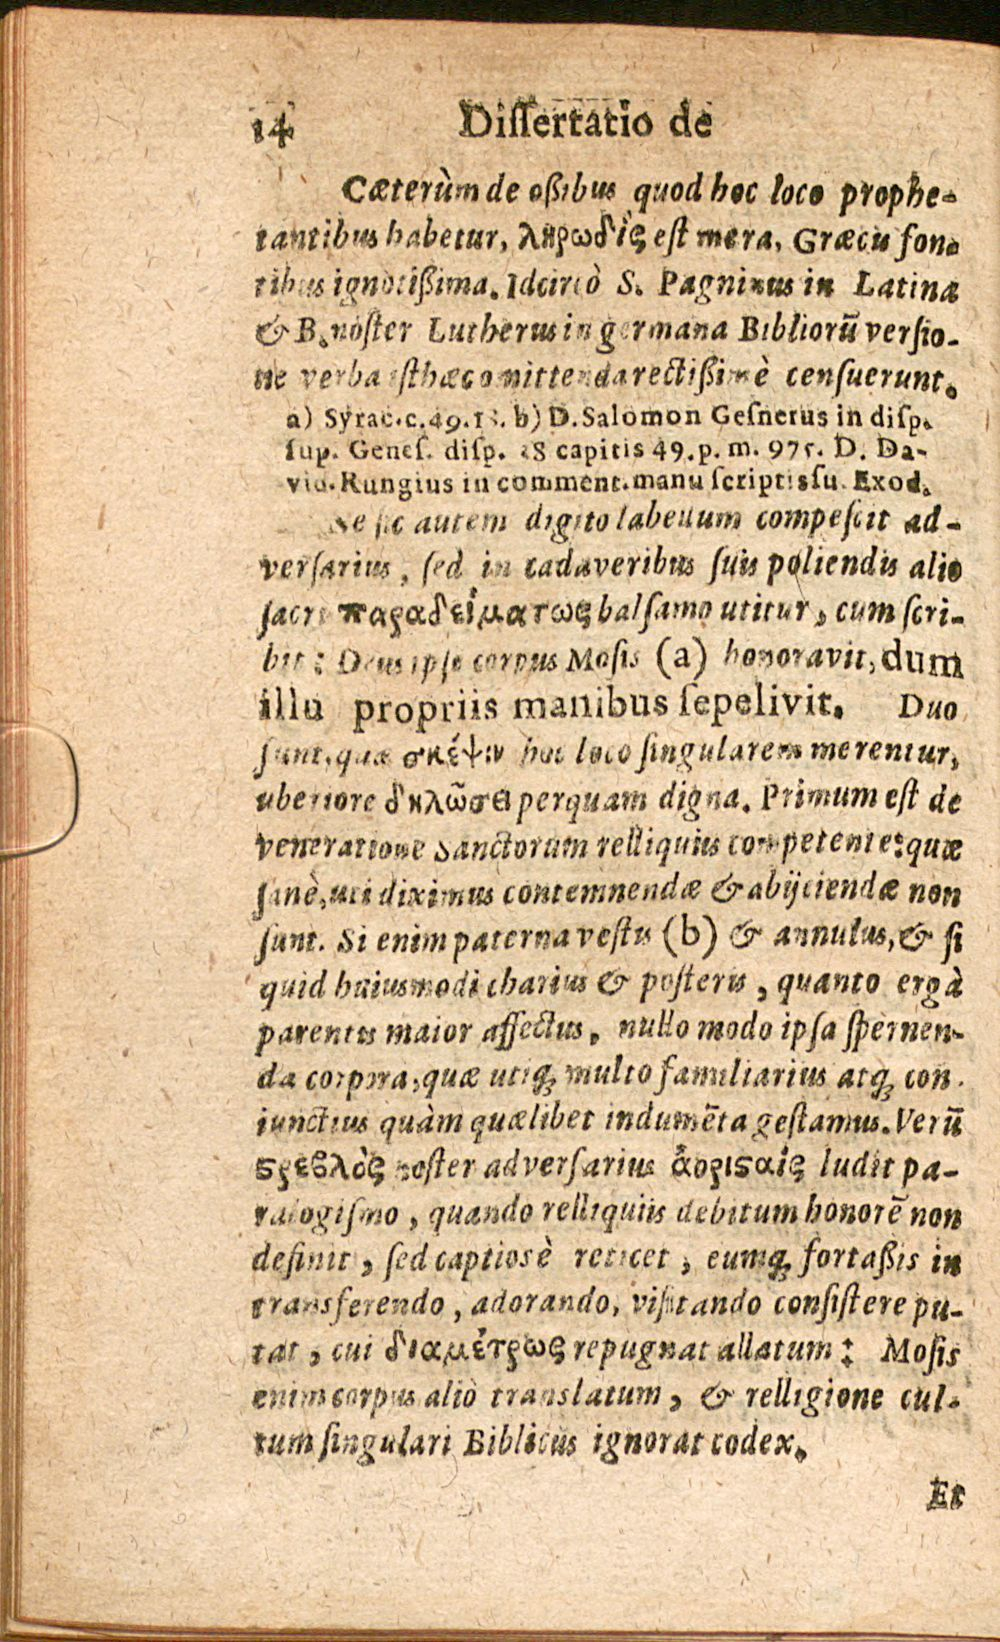 14 Dissertatio de
Cæterùm de oßibus quod hoc loco prophe-
tantibus habetur, ληρωδὶς est mera, Græcis fon-
tibus ignotißima. Idcircò S. Pagninus in Latina
& B. noster Lutherus in germana Bibliorū versio-
ne verba isthæc omittenda rectißimè censuerunt.
a) Syrac. c. 49. 18. b) D. Salomon Gesnerus in disp.
sup. Genes. disp. 18 capitis 49. p. m. 975. D. Da-
vid. Rungius in comment. manu scriptis su. Exod.
Ne sic autem digito labellum compescit ad-
versarius, sed in cadaveribus suis poliendis alio
sacri παραδείματως balsamo utitur, cum scri-
bit: Deus ipse corpus Mosis (a) honoravit, dum
illū propriis manibus sepelivit. Duo
sunt, quæ σκέψιν hoc loco singularem merentur,
uberiore δηλῶσει perquam digna. Primum est de
veneratione Sanctorum relliquiis competente: quæ
sanè, uti diximus contemnendæ & abijciendæ non
sunt. Si enim paterna vestis (b) & annulus, & si
quid huiusmodi charius & posteris, quanto ergà
parentes maior affectus, nullo modo ipsa spernen-
da corpora, quæ utiq́; multo familiarius atq́; con-
iunctius quàm quælibet indumēta gestamus. Verū
ϛρεβλὸς noster adversarius ἀοριϛαὶς ludit pa-
ralogismo, quando relliquiis debitum honorē non
definit, sed captiosè reticet, eumq́; fortaßis in
transferendo, adorando, visitando consistere pu-
tat, cui διαμέτρως repugnat allatum: Mosis
enim corpus aliò translatum, & relligione cul-
tum singulari Biblicus ignorat codex.
Et